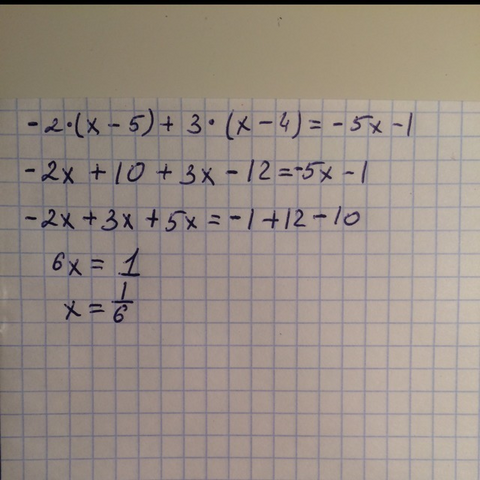 -2·(x-5)+3·(x-4)=-5x-1
-2x+10+3x-12=-5x-1
-2x+3x+5x=-1+12-10
6x=1
x=1/6